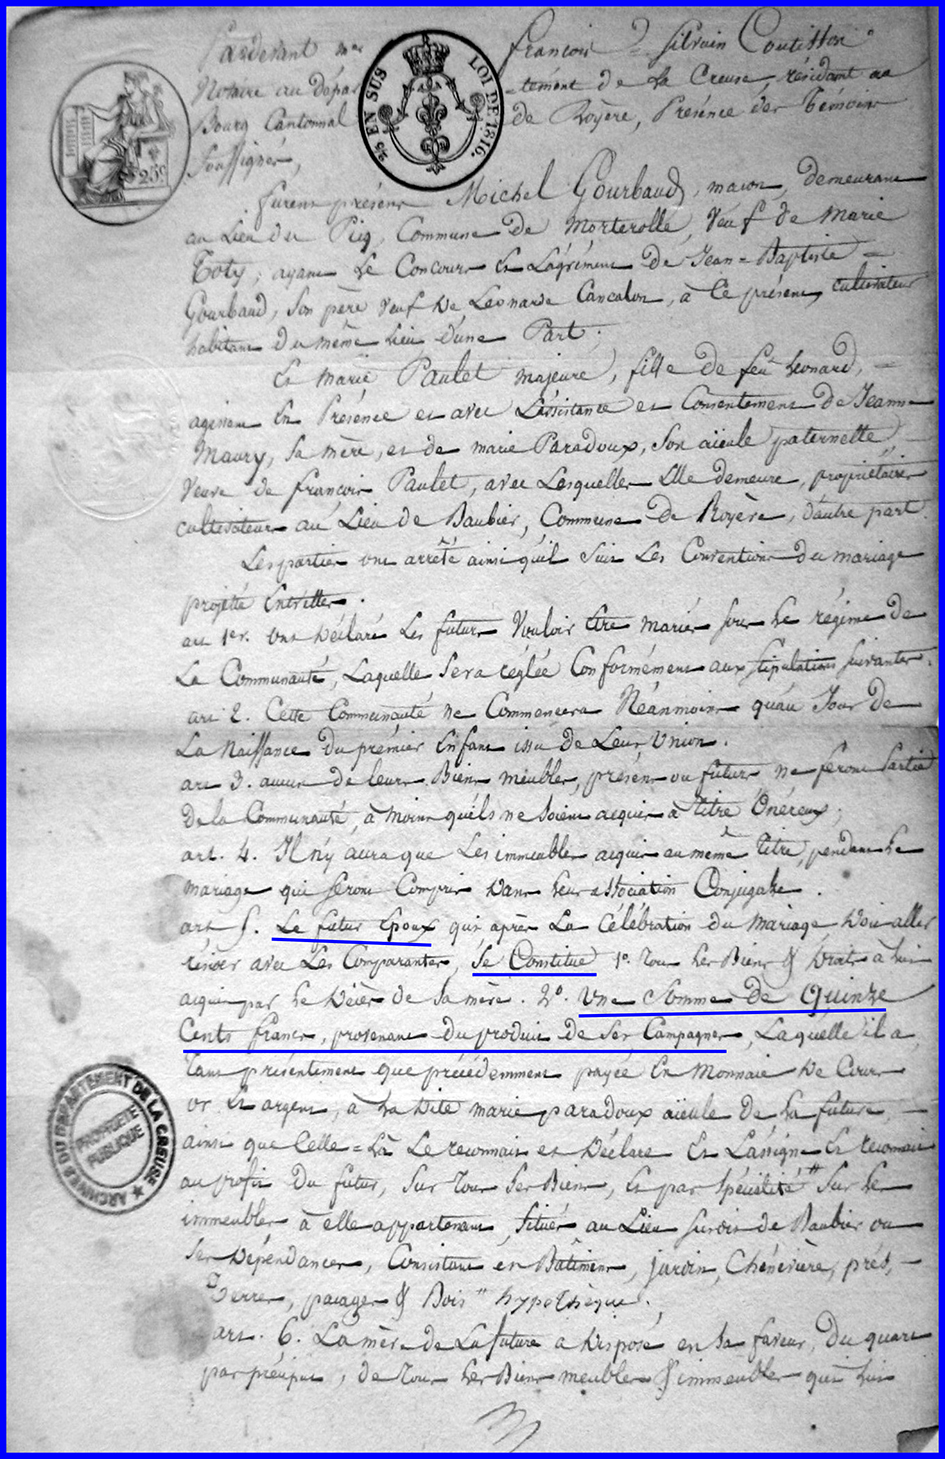 Pardevant me François = Silvain Coutisson
Notaire au dépar-tément de La Creuse, résidant au
Bourg Cantonnal de Royère, Présence des Témoins
Soussignés,
25 EN SUS LOI DE 1816.
25c
furent présens Michel Gourbaud, maçon, demeurant
au Lieu du Piq, Commune de Morterolle, Veuf de Marie
Toty, ayant Le Concours Et Lagrément de Jean=Baptiste =
Gourbaud, Son père Veuf de Leonarde Cancalon, à Ce présent, cultivateur
habitant du même lieu d'une Part;
Et marie Paulet majeure, fille de feu Leonard, =
agissant En Présence et avec L'assistance et Consentement de Jeanne
Maury, Sa mère, et de marie Paradoux, Son aïeule paternelle
Veuve de françois Paulet, avec Lesquelles Elle demeure, propriétaire
cultivateurs au Lieu de Baubier, Commune de Royère, d'autre part
Les parties ont arrêté ainsi qu'il Suit Les Conventions du mariage
projetté Entr'elles.
art 1er. Ont déclaré Les futurs Vouloir être mariés sous Le régime de
La Communauté, Laquelle Sera réglée Conformément aux stipulations suivantes.
art 2. Cette Communauté ne Commencera Néanmoins qu'au Jour de
La Naissance du prémier Enfant issu de Leur Union.
art 3. aucun de leurs Biens meubles, présens ou futurs ne feront Partie
de la Communauté, à moins qu'ils ne Soient acquis à titre Onéreux;
art. 4. Il n'y aura que Les immeubles acquis au même titre, pendant Le
mariage qui Seront Compris dans Leur association Conjugale.
art 5. Le futur Epoux qui après La Célébration du Mariage doit aller
résider avec Les Comparantes, Se Constitue 1°. Tous Les Biens & Droits à lui
acquis par Le décès de Sa mère. 2°. Une Somme de Quinze
Cents francs, provenant du produit de Ses Campagnes, Laquelle il a,
Tant présentement que précédemment payée En Monnaie de Cours
or Et argent, à La dite marie paradoux aïeule de La future, =
ainsi que Celle=là Le reconnait et Déclare Et L'assigne Et reconnait
au profit Du futur, Sur Tous Ses Biens, Et par Spécialité Sur Les
immeubles à elle appartenant, Situés au Lieu Susdit de Baubier ou
Ses dépendances, Consistant en Bâtimens, jardin, Chénévière, prés, =
Terres, pacages & Bois " hypothèque.
art. 6. La mère de La future a disposé en Sa faveur, Du quart
par préciput, de Tous Les Biens meubles & immeubles qui lui
ARCHIVES DU DÉPARTEMENT DE LA CREUSE
PROPRIÉTÉ
PUBLIQUE